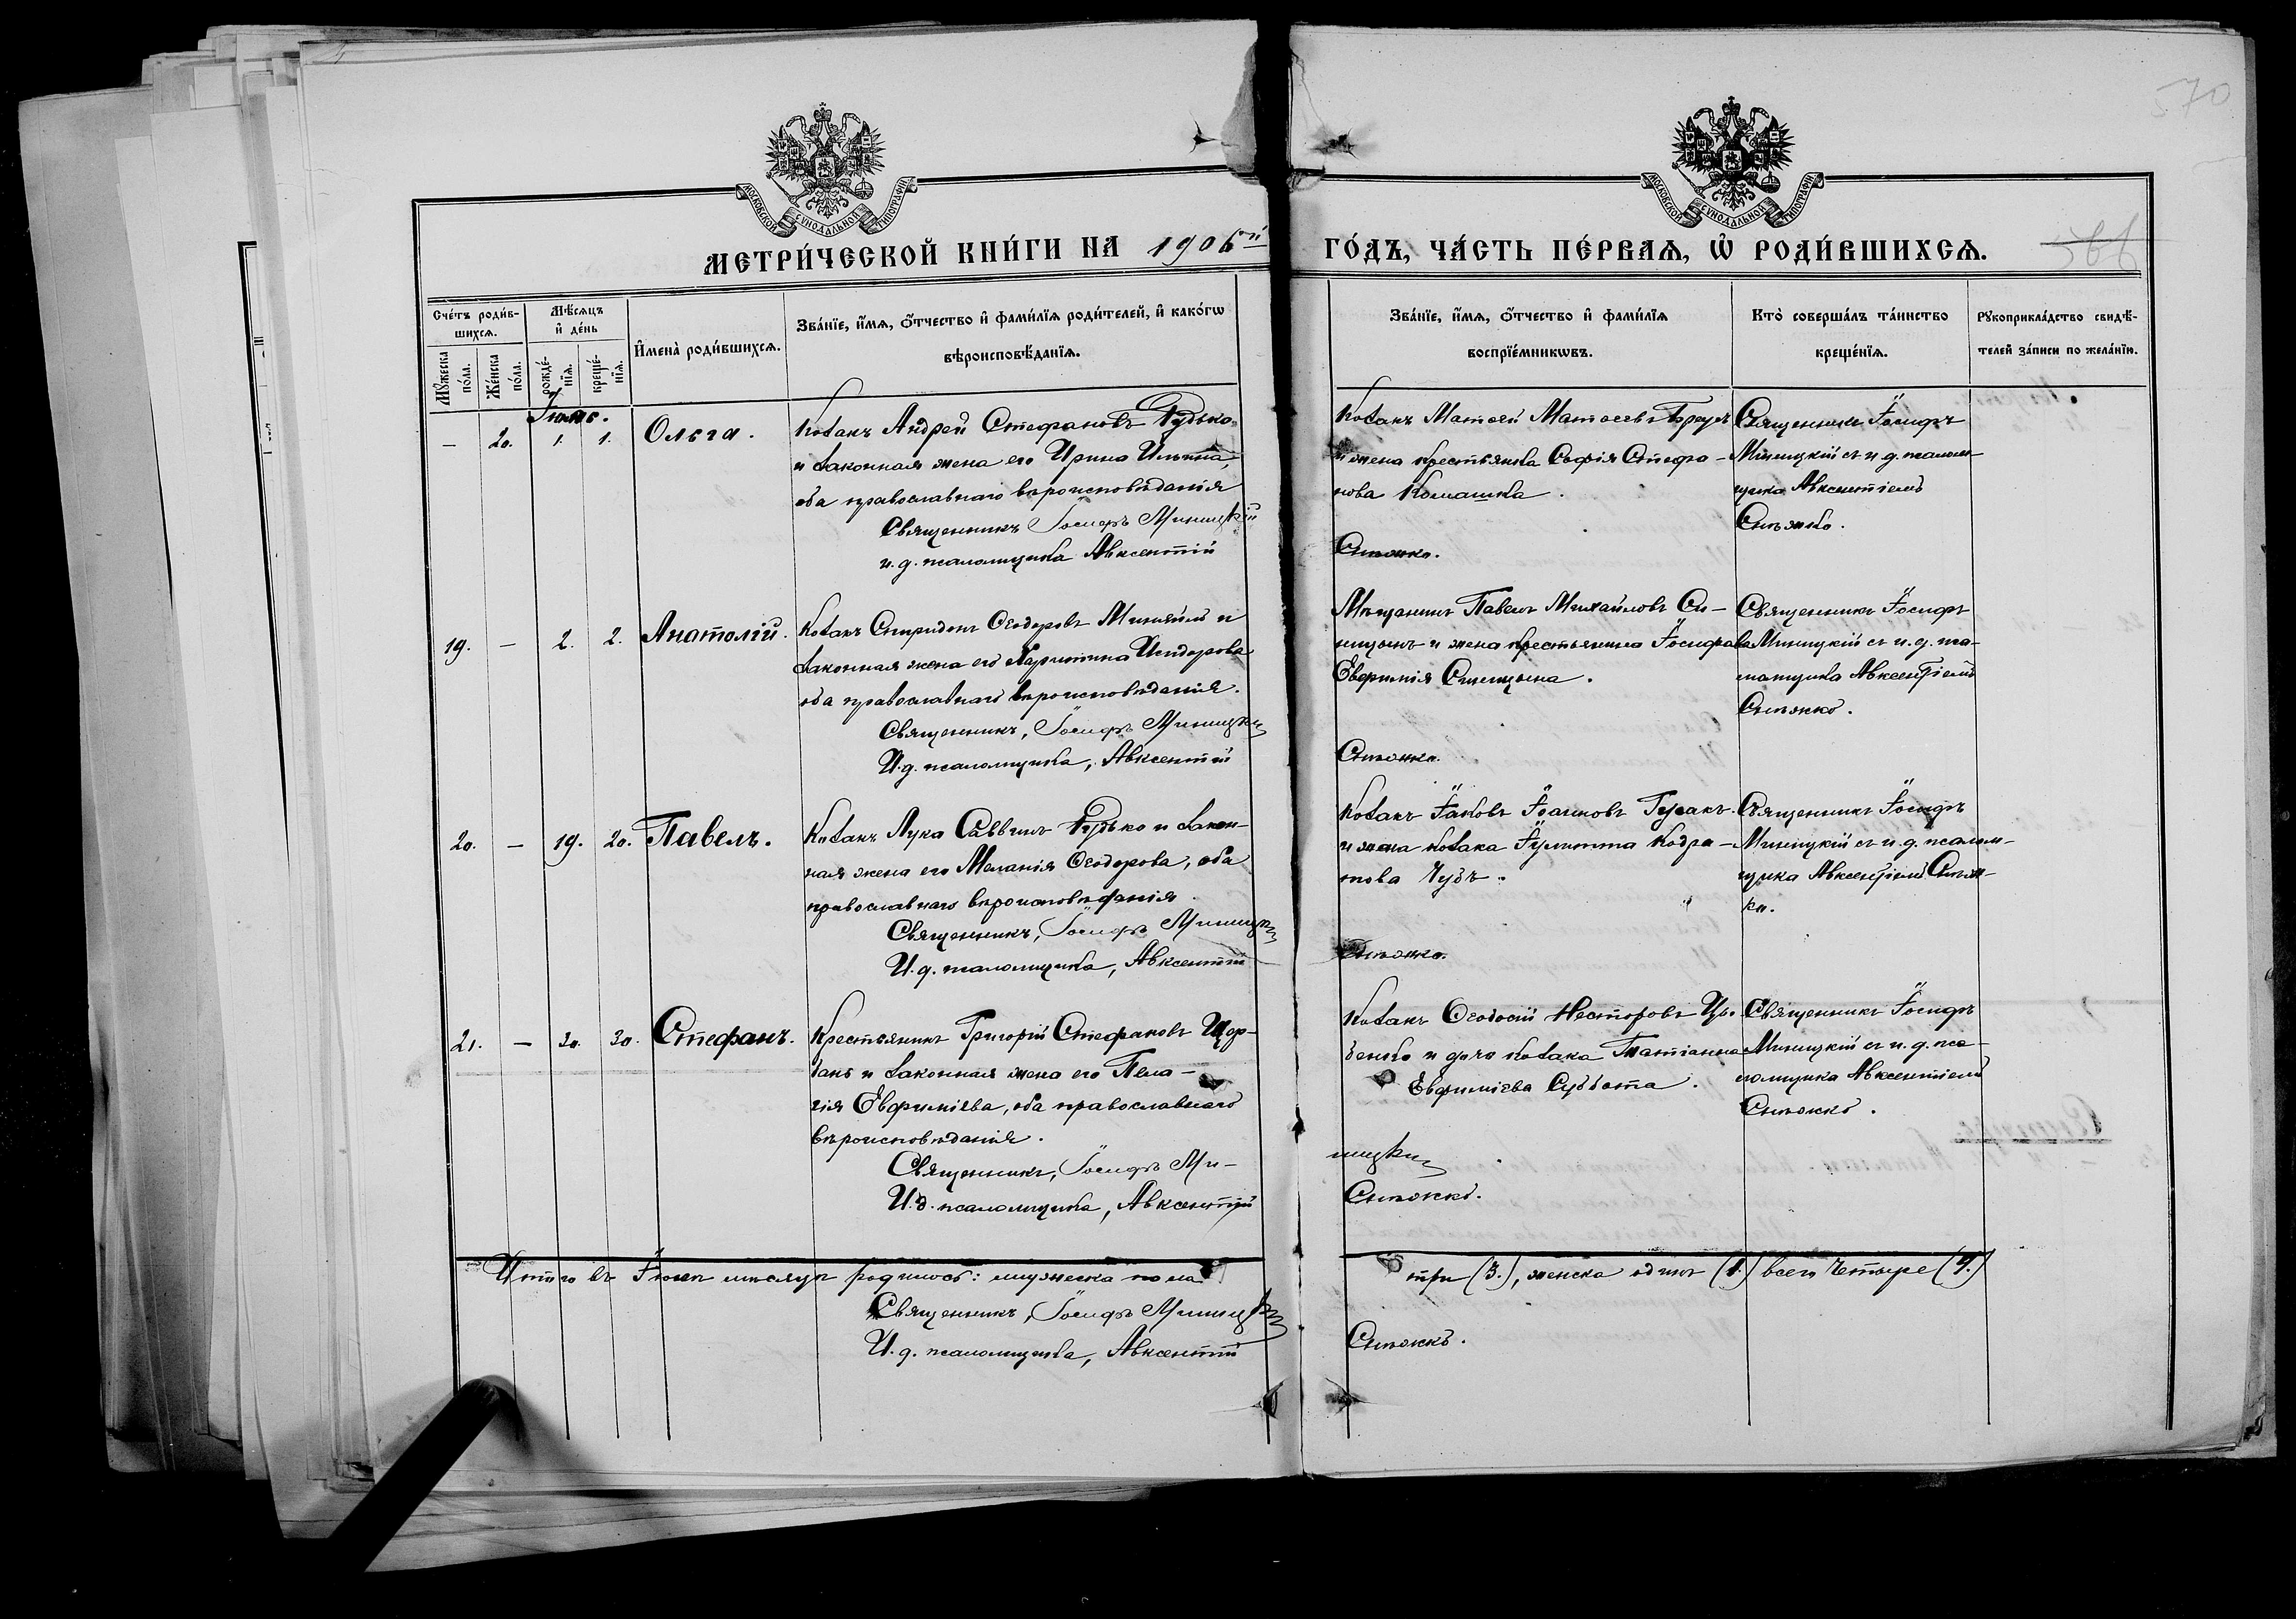 570
МОСКОВСКОЙ СѴНОДАЛЬНОЙ ТИПОГРАФІИ
МОСКОВСКОЙ СѴНОДАЛЬНОЙ ТИПОГРАФІИ
МЕТРИ́ЧЕСКОЙ КНИ́ГИ НА 1906й
ГО́ДЪ, ЧА́СТЬ ПЕ́РВАѦ, Ѡ҆ РОДИ́ВШИХСѦ.
Сче́тъ роди́в-
шихсѧ.
Мѣ́сѧцъ
и҆ де́нь
Мꙋ́жеска
по́ла.
Же́нска
по́ла.
рожде́-
нїѧ.
креще́-
нїѧ.
И҆мена̀ роди́вшихсѧ.
Зва́нїе, и҆́мѧ, ѻ҆́тчество и҆ фами́лїѧ роди́телей, и҆ како́гѡ
вѣроисповѣ́данїѧ.
Зва́нїе, и҆́мѧ, ѻ҆́тчество и҆ фами́лїѧ
воспрїе́мникѡвъ.
Кто̀ соверша́лъ та́инство
креще́нїѧ.
Рꙋкоприкла́дство свидѣ́-
телей за́писи по жела́нїю.
Іюнь.
— 20. 1. 1. Ольга.
Козакъ Андрей Стефановъ Рудько
и законная жена его Ирина Ильина,
оба православнаго вѣроисповѣданія
Священникъ Іосифъ Миницкій
и. д. псаломщика Авксентій
Козакъ Матѳей Матѳеевъ
и жена крестьянка Софія Стефа-
нова Комашка.
Сножко.
Священникъ Іосифъ
Миницкій съ и. д. псалом-
щика Авксентіемъ
Сножко.
19. — 2. 2. Анатолій.
Козакъ Спиридонъ Ѳеодоровъ Миняйло и
законная жена его Харитина Исидорова
оба православнаго вѣроисповѣданія.
Священникъ, Іосифъ Миницкій
И. д. псаломщика, Авксентій
Мѣщанинъ Павелъ Михайловъ Си-
ницынъ и жена крестьянина Іосифа
Евфимія Синицына.
Сножко.
Священникъ Іосифъ
Миницкій съ и. д. пса-
ломщика Авксентіемъ
Сножко.
20. — 19. 20. Павелъ.
Козакъ Лука Саввинъ Рудько и закон-
ная жена его Меланія Ѳеодорова, оба
православнаго вѣроисповѣданія
Священникъ, Іосифъ Миницкій
И. д. псаломщика, Авксентій
Козакъ Іаковъ Іоанновъ Гусакъ
и жена козака Іулитта Кодра-
това Чубъ.
Сножко.
Священникъ Іосифъ
Миницкій съ и. д. псалом-
щика Авксентіемъ Снож-
ко.
21. — 30. 30. Стефанъ.
Крестьянинъ Григорій Стефановъ Щер-
бакъ и законная жена его Пела-
гія Евфиміева, оба православнаго
вѣроисповѣданія.
Священникъ, Іосифъ Ми-
И. д. псаломщика, Авксентій
Козакъ Ѳеодосій Несторовъ
и дочь козака Татіанна
Евфиміева Суббота.
ницкій
Сножко.
Священникъ Іосифъ
Миницкій съ и. д. пса-
ломщика Авксентіемъ
Сножко.
Итого въ Іюнѣ мѣсяцѣ родилось: мужеска пола
три (3.), женска одинъ (1.) всего четыре (4.)
Священникъ, Іосифъ Миницкій
И. д. псаломщика, Авксентій
Сножко.